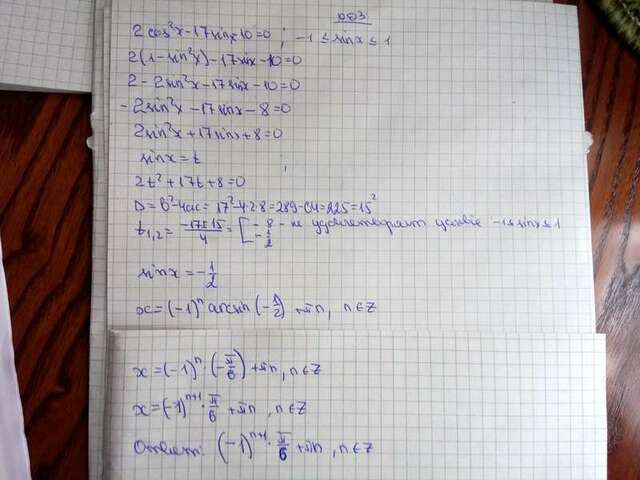 №3
2cos²x-17sinx-10=0 ; -1≤sinx≤1
2(1-sin²x)-17sinx-10=0
2-2sin²x-17sinx-10=0
-2sin²x-17sinx-8=0
2sin²x+17sinx+8=0
sinx=t ;
2t²+17t+8=0
D=b²-4ac=17²-4·2·8=289-64=225=15²
t₁,₂= (-17±15)/4 = [ -8 - не удовлетворяет условие -1≤sinx≤1
-1/2
sinx=-1/2
x=(-1)ⁿ arcsin(-1/2)+πn, n∈Z
x=(-1)ⁿ·(-π/6)+πn, n∈Z
x=(-1)ⁿ⁺¹·π/6+πn, n∈Z
Ответ: (-1)ⁿ⁺¹·π/6+πn, n∈Z